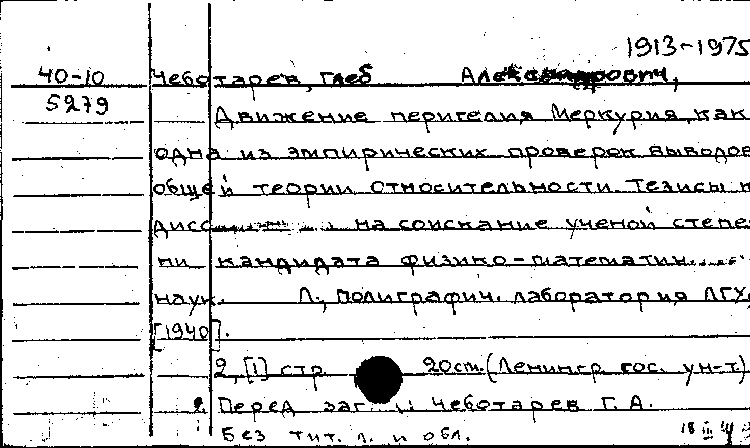 1913-1975
40-10 Чеботарев, Глеб Александрович,
5279
Движение перигелия Меркурия, как
одна из эмпирических проверок выводов
общей теории относительности. Тезисы к
дисс на соискание ученой степе-
ни кандидата физико-математич.
наук. Л., Полиграфич. лаборатория ЛГУ,
[1940].
2, [1] стр. 20 см. (Ленингр. гос. ун-т)
Перед заг.: Чеботарев Г. А.
Без тит. л. и обл.